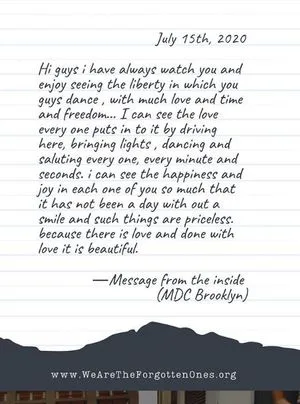 July 15th, 2020
Hi guys i have always watch you and
enjoy seeing the liberty in which you
guys dance , with much love and time
and freedom... I can see the love
every one puts in to it by driving
here, bringing lights , dancing and
saluting every one, every minute and
seconds. i can see the happiness and
joy in each one of you so much that
it has not been a day with out a
smile and such things are priceless.
because there is love and done with
love it is beautiful.
—Message from the inside
(MDC Brooklyn)
www.WeAreTheForgottenOnes.org